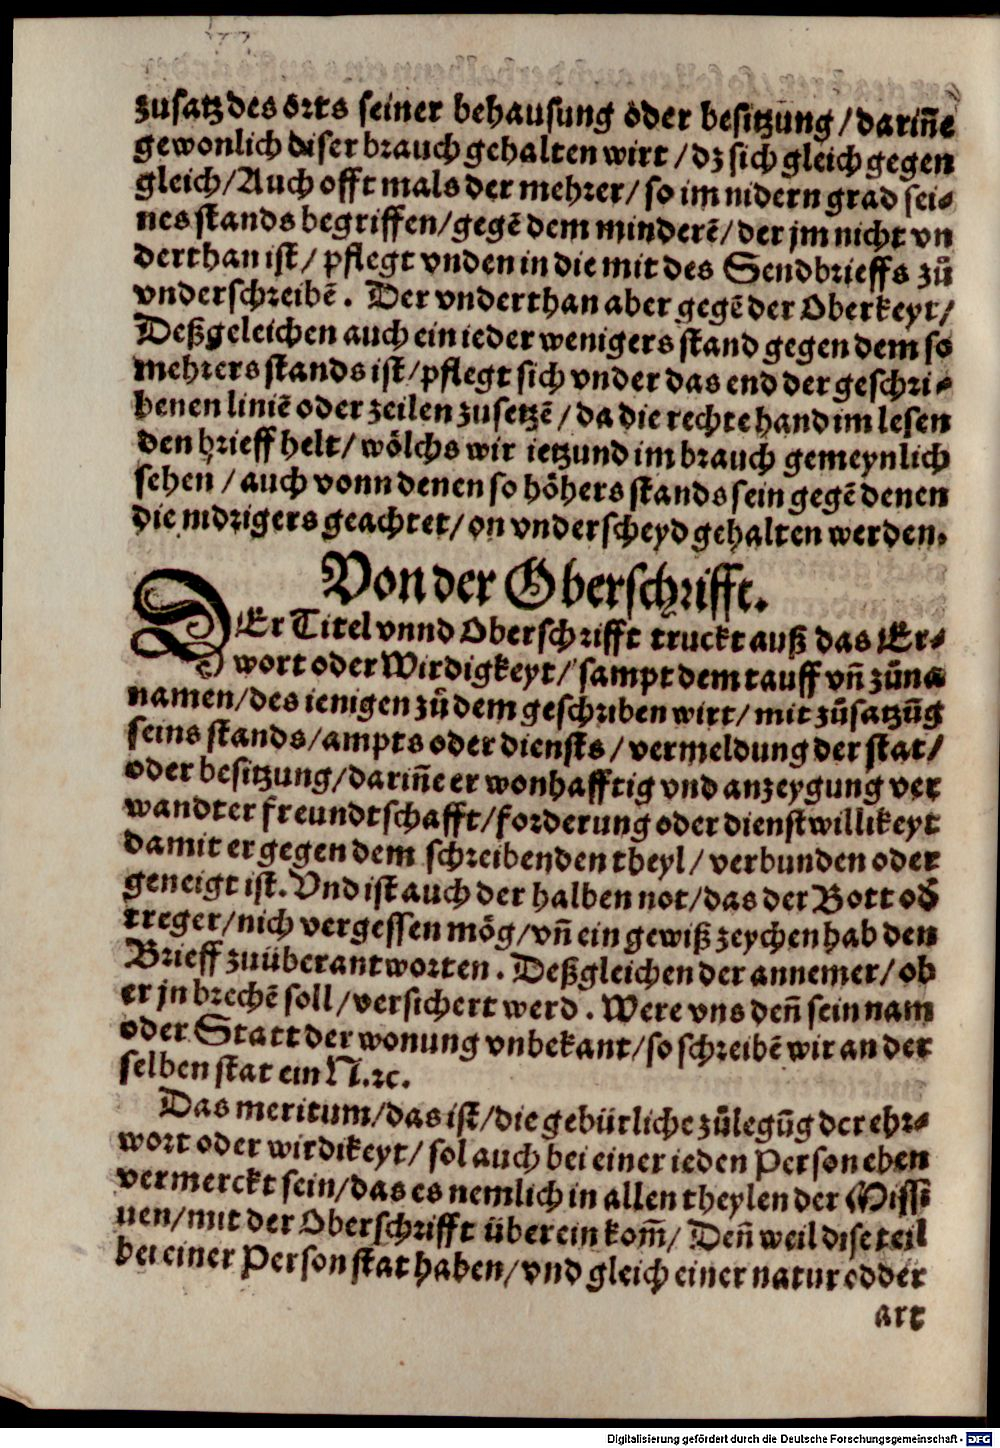 zusatz des orts seiner behausung oder besitzung / dariñe
gewonlich diser brauch gehalten wirt / dz sich gleich gegen
gleich / Auch offt mals der mehrer / so im nidern grad sei⸗
nes stands begriffen / gegē dem minderē / der jm nicht vn
derthan ist / pflegt vnden in die mit des Sendbrieffs zů
vnderschreibē . Der vnderthan aber gegē der Oberkeyt /
Deßgeleichen auch ein ieder wenigers stand gegen dem so
mehrers stands ist / pflegt sich vnder das end der geschri⸗
benen liniē oder zeilen zusetzē / da die rechte hand im lesen
den brieff helt / wölchs wir ietzund im brauch gemeynlich
sehen / auch vonn denen so höhers stands sein gegē denen
die nidrigers geachtet / on vnderscheyd gehalten werden.
Von der Oberschrifft.
DEr Titel vnnd Oberschrifft truckt auß das Er⸗
wort oder Wirdigkeyt / sampt dem tauff vñ zůna
namen / des ienigen zů dem geschriben wirt / mit zůsatzūg
seins stands / ampts oder diensts / vermeldung der stat /
oder besitzung / dariñe er wonhafftig vnd anzeygung ver
wandter freundtschafft / forderung oder dienstwillikeyt
damit er gegen dem schreibenden theyl / verbunden oder
geneigt ist. Vnd ist auch der halben not / das der Bott od̕
treger / nich vergessen mög / vñ ein gewiß zeychen hab den
Brieff zuüberantworten . Deßgleichen der annemer / ob
er jn brechē soll / versichert werd . Were vns deñ sein nam
oder Statt der wonung vnbekant / so schreibē wir an der
selben stat ein N.ꝛc.
Das meritum / das ist / die gebürliche zůlegūg der ehr⸗
wort oder wirdikeyt / sol auch bei einer ieden Person eben
vermerckt sein / das es nemlich in allen theylen der Missi
uen / mit der Oberschrifft überein kom̄ / Deñ weil dise teil
bei einer Person stat haben / vnd gleich einer natur odder
art
Digitalisierung gefördert durch die Deutsche Forschungsgemeinschaft - DFG